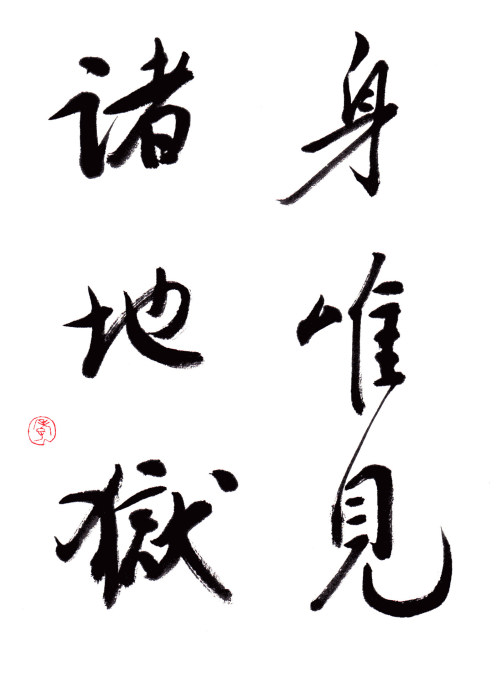 身唯見
諸地獄